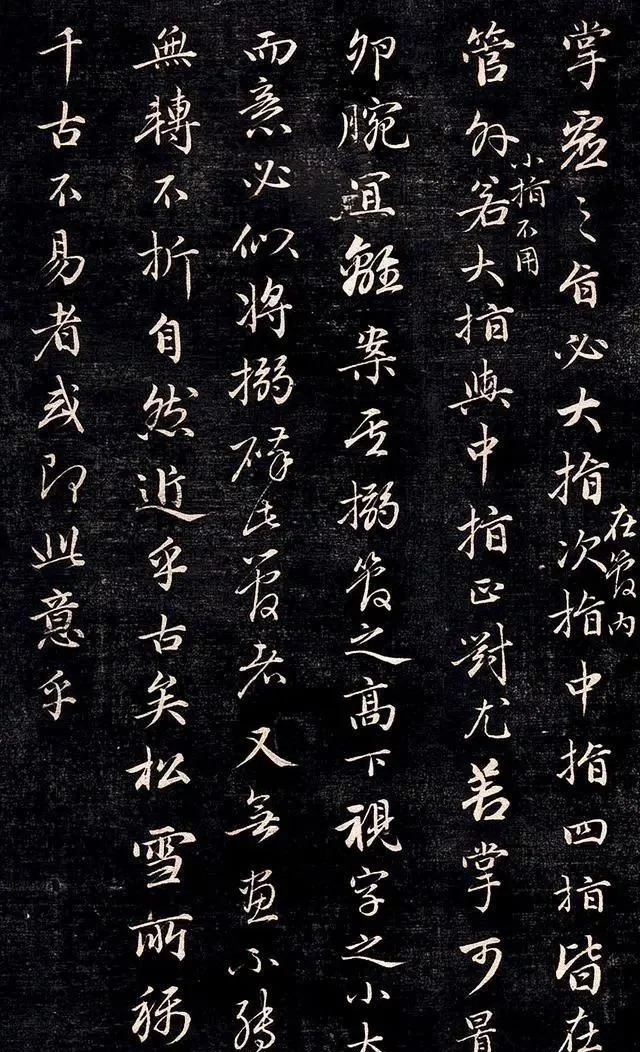 掌虛之旨必大指次指中指四指皆在
在管内
管外若大指與中指正對尤若掌可
小指不用
卵腕宜離案至搦管之高下視字之小大
而意必似將搦碎此管者又無畫不轉
無轉不折自然近乎古矣松雪所稱
千古不易者或即此意乎